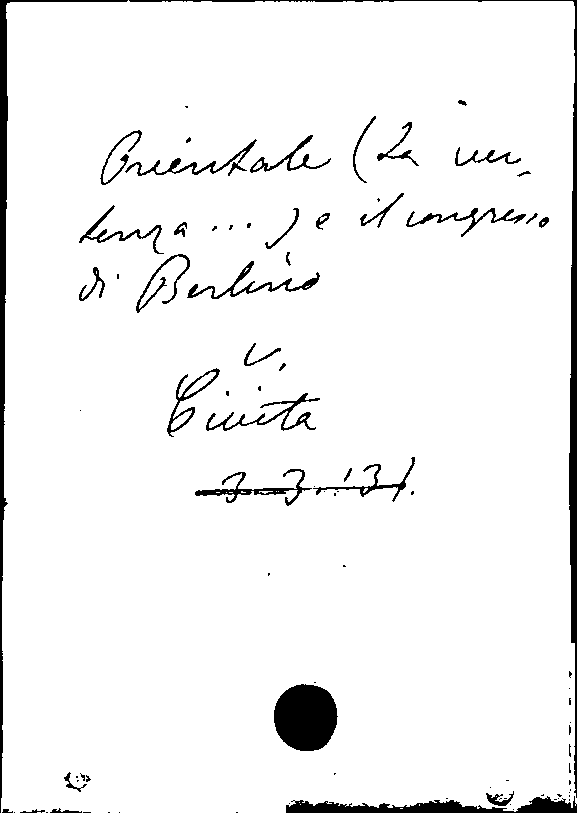 Orientale (La ver-
tenza ...) e il congresso
di Berlino
v.
Civita
3.3.'31.